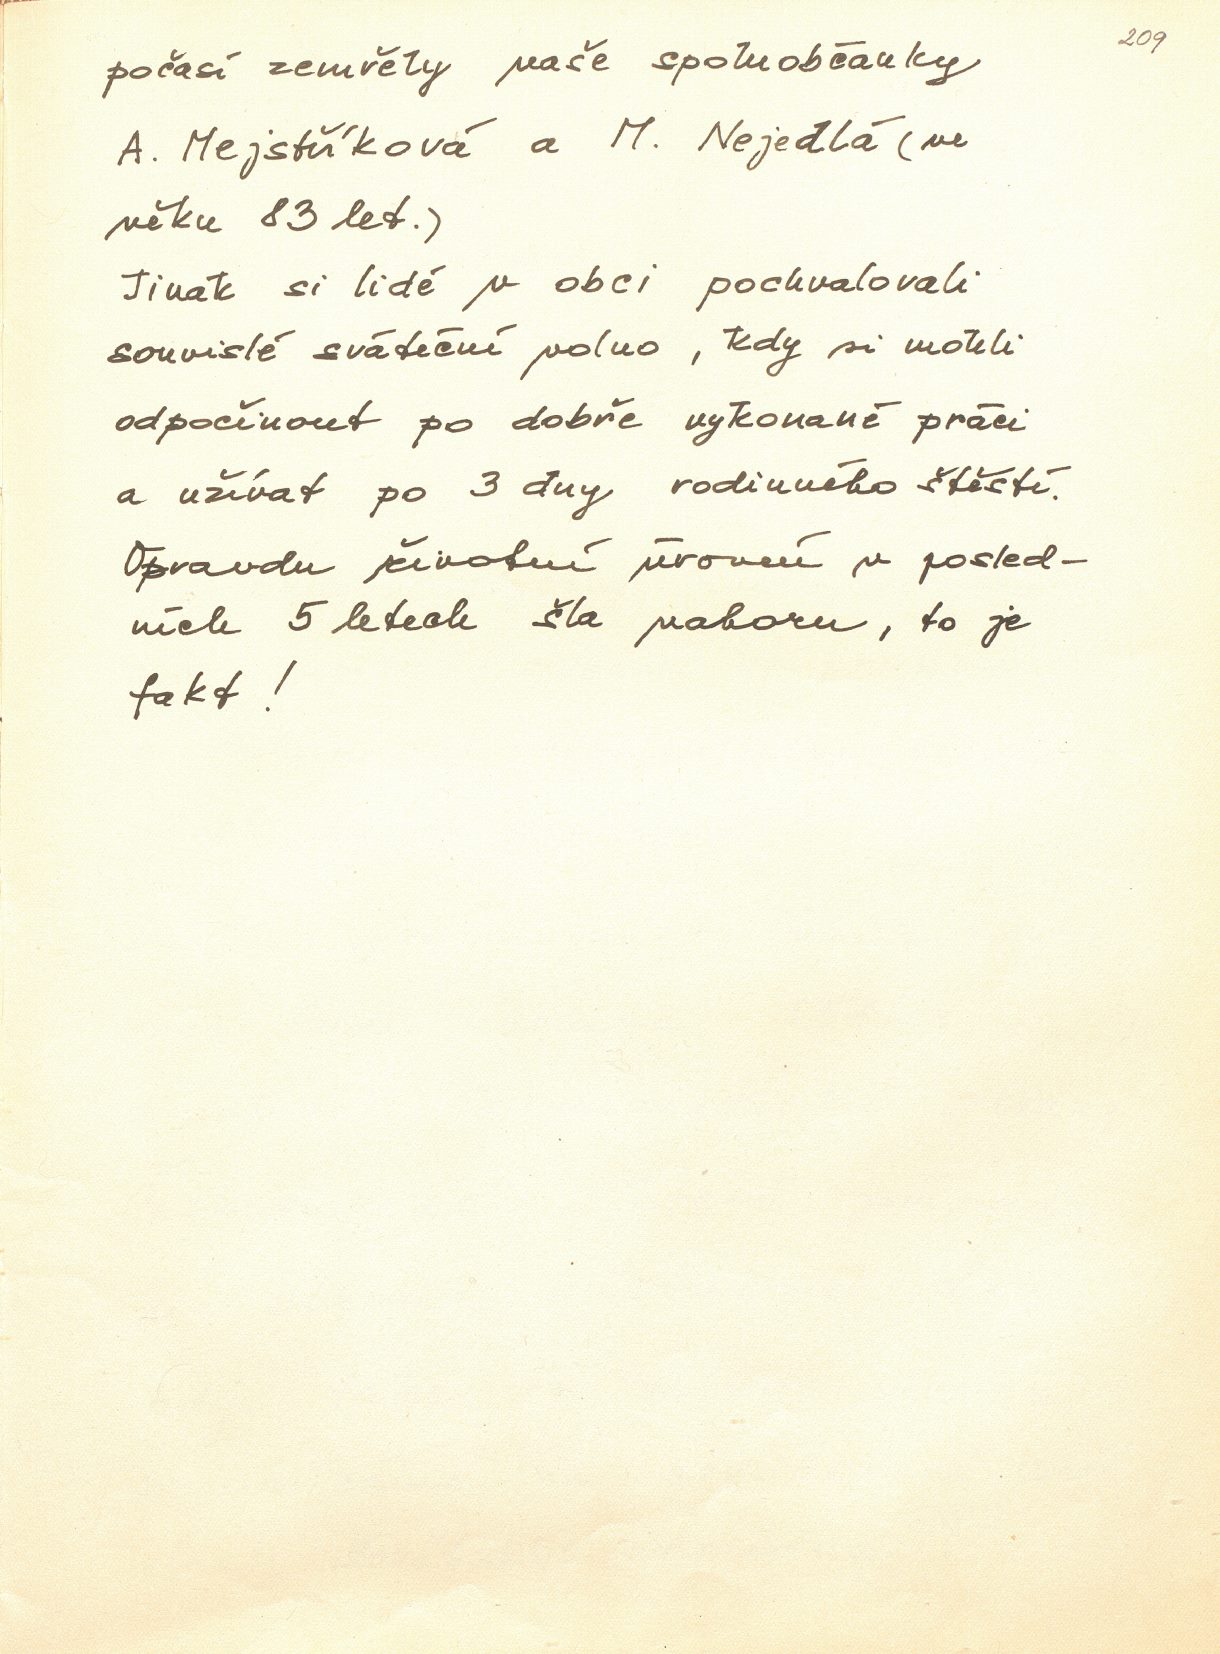 209
počasí zemřely naše spoluobčanky
A. Mejstříková a M. Nejedlá (ve
věku 83 let.)
Jinak si lidé v obci pochvalovali
souvislé sváteční volno, kdy si mohli
odpočinout po dobře vykonané práci
a užívat po 3 dny rodinného štěstí.
Opravdu životní úrovní v posled-
ních 5 letech šla nahoru, to je
fakt!